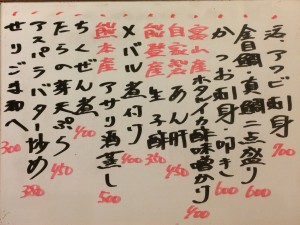 活、アワビ刺身 700
金目鯛・真鯛二点盛り 600
かつお刺身・叩き 600
富山産 ホタルイカ酢味噌かけ 400
自家製 あん肝 350
能登産 生子酢 450
メバル煮付け
熊本産 アサリ酒蒸し 500
ちくぜん煮 400
たらの芽天ぷら 450
アスパラバター炒め 380
せりごま和へ 300